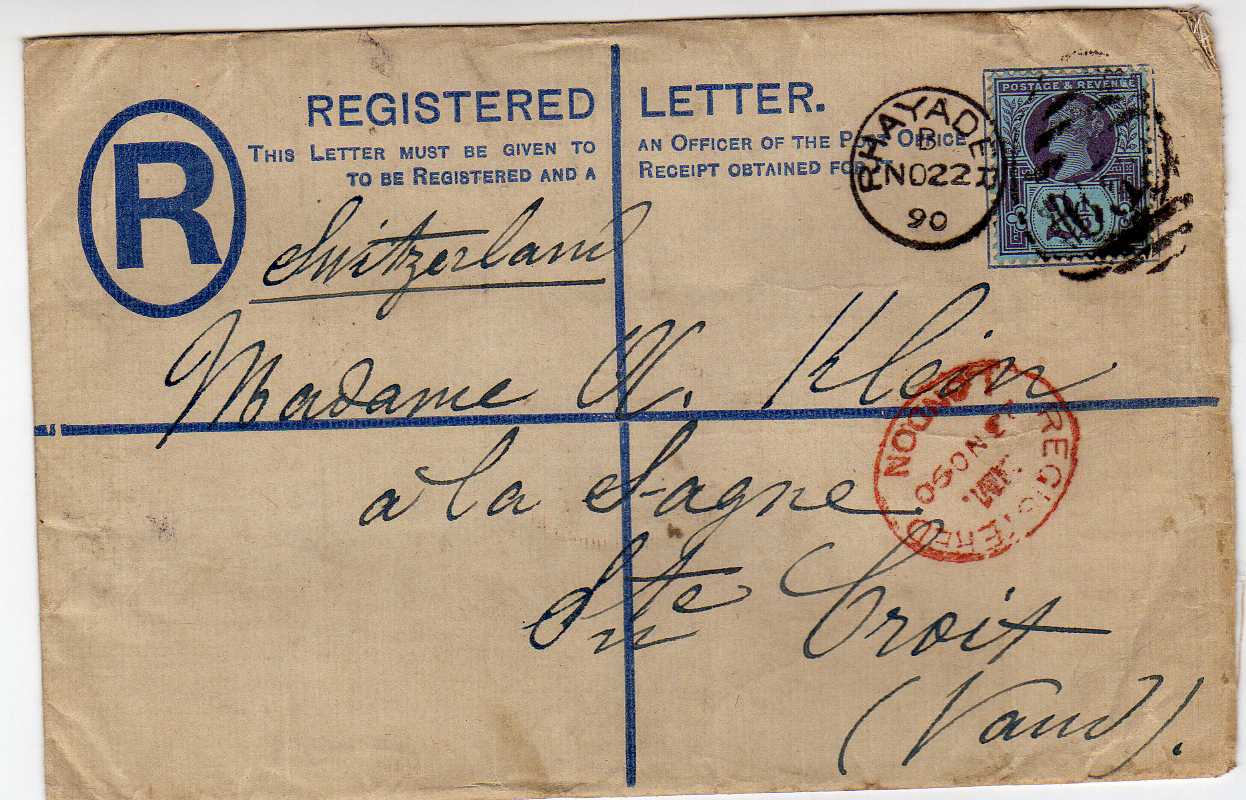 REGISTERED LETTER.
THIS LETTER MUST BE GIVEN TO AN OFFICER OF THE POST OFFICE
TO BE REGISTERED AND A RECEIPT OBTAINED FOR IT
R
POSTAGE & REVENUE
RHAYADER
B
NO 22
90
Switzerland
Madame K. Klein
à la Sagne
Ste Croix
(Vaud).
REGISTERED LONDON
NO 90